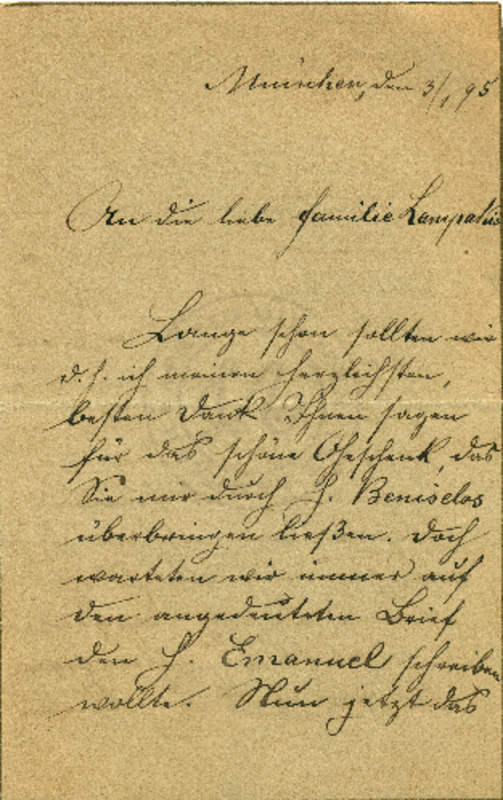 München, den 3/1 95
An die liebe Familie Lampakis
Lange schon sollten wir
d. h. ich meinen herzlichsten,
besten Dank Ihnen sagen
für das schöne Geschenk, das
Sie mir durch H. Beniselos
überbringen ließen. Doch
warteten wir immer auf
den angedeuteten Brief
den H. Emanuel schreiben
wollte. Nun jetzt das